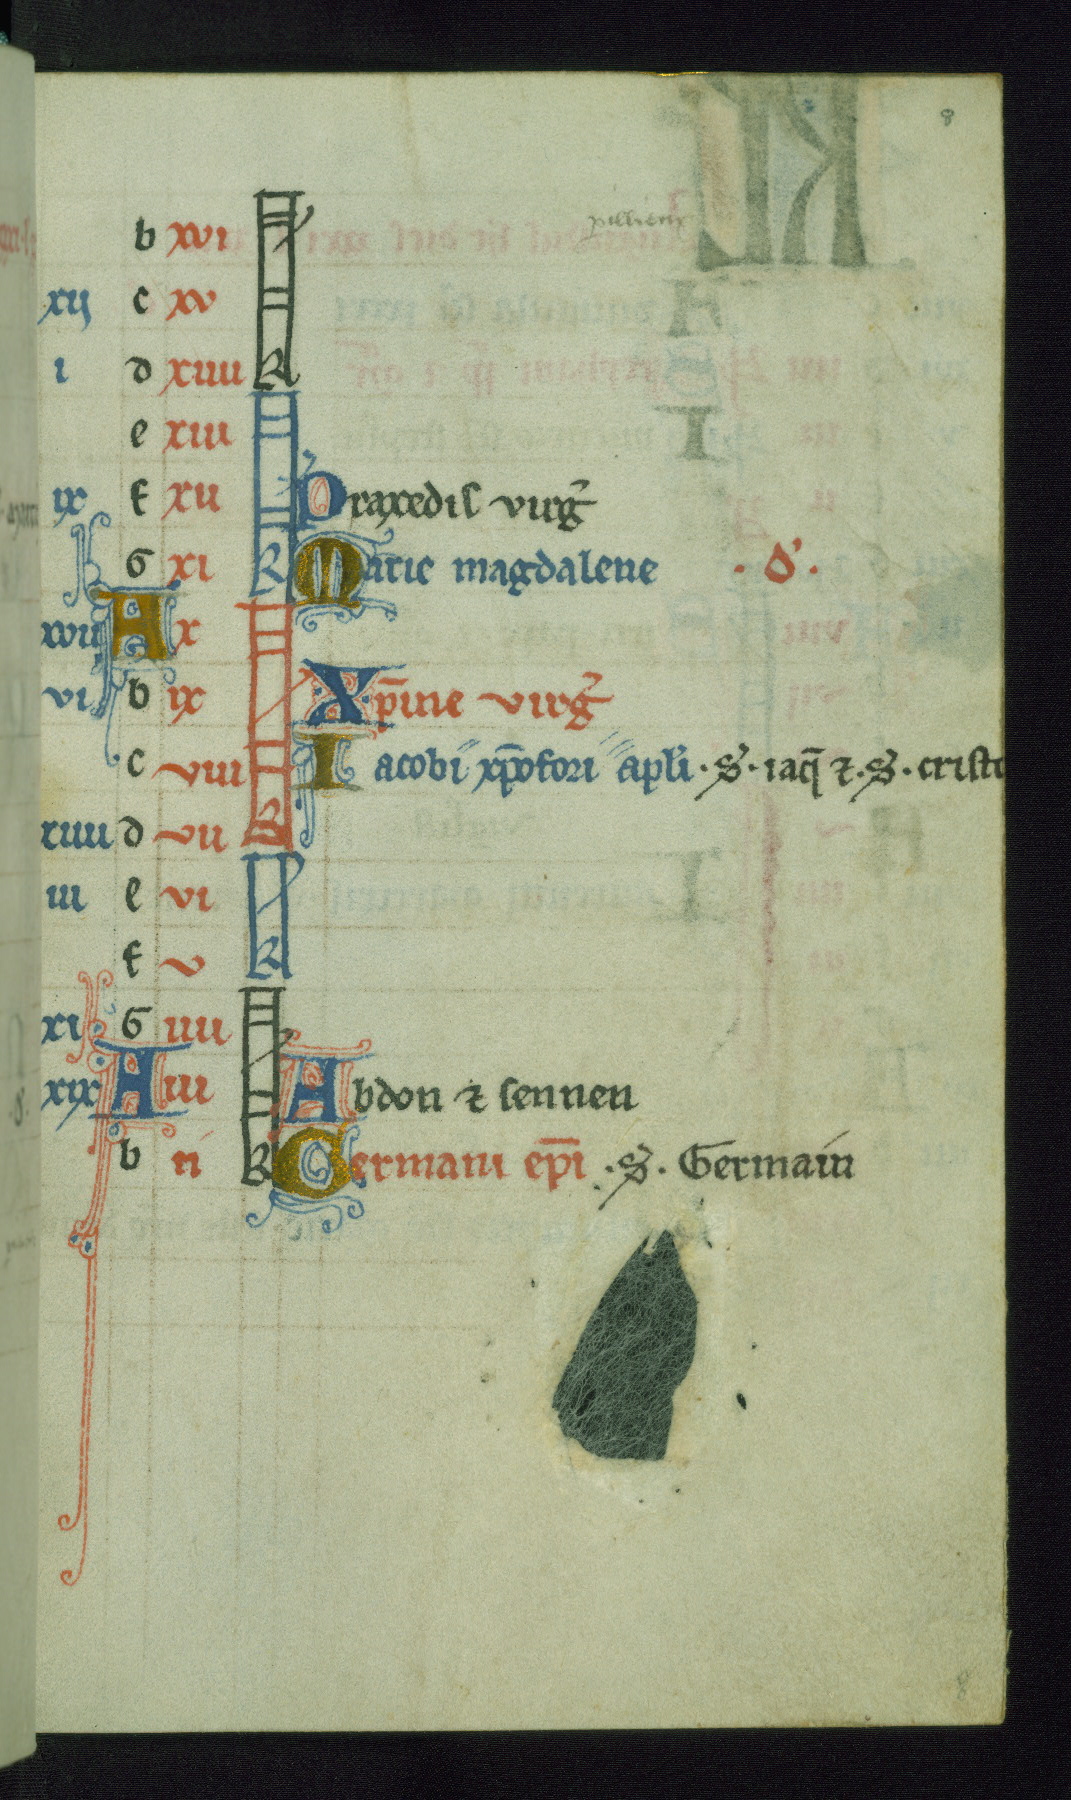 8
b xvi
xij c xv
i d xiiii KR
e xiii
ix f xii Praxedis virg̃
G xi KR Marie magdalene . δ .
xvii A x
vi b ix Xp̄ine virg̃
c viii Iacobi xp̄ofori apl̃i · S · iaq̃ ⁊ · S · cristo
xiiii d vii KR
iii e vi
f v KR
xi G iiii
xix A iii Abdon ⁊ sennen
b ii KR Germani ep̄i · S · Germain